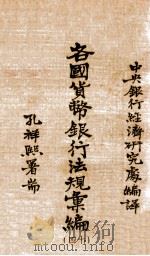 中央銀行經濟研究處編譯
各國貨幣銀行法規彙編
孔祥熙署耑